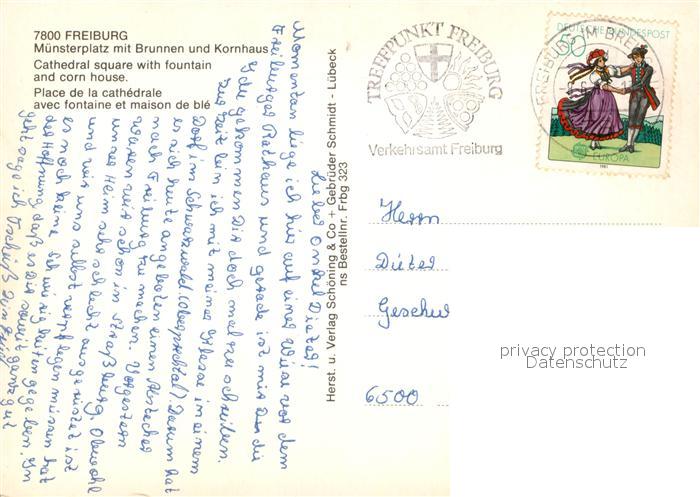 7800 FREIBURG
Münsterplatz mit Brunnen und Kornhaus
Cathedral square with fountain
and corn house.
Place de la cathédrale
avec fontaine et maison de blé
Herst. u. Verlag Schöning & Co + Gebrüder Schmidt - Lübeck
ns Bestellnr. Frbg 323
TREFFPUNKT FREIBURG
Verkehrsamt Freiburg
FREIBURG IM BREISGAU
DEUTSCHE BUNDESPOST
50
EUROPA
1981
Lieber Onkel Dieter!
Momentan liege ich hier auf einer Wiese vor dem
Freiburger Rathaus und gerade ist mir die
Idee gekommen Dir doch mal zu schreiben.
Zur Zeit bin ich mit meiner Klasse in einem
Dorf im Schwarzwald (Oberprechtal). Darum hat
es sich heute angeboten einen Abstecher
nach Freiburg zu machen. Vorgestern
waren wir schon in Straßburg. Obwohl
unser Heim sehr schlecht ausgerüstet ist
und wir uns selbst verpflegen müssen hat
es noch keine Schwierigkeiten gegeben. In
der Hoffnung, daß es Dir soweit ganz gut
geht sage ich Tschüß Dein
Herrn
Dieter
6500
privacy protection
Datenschutz